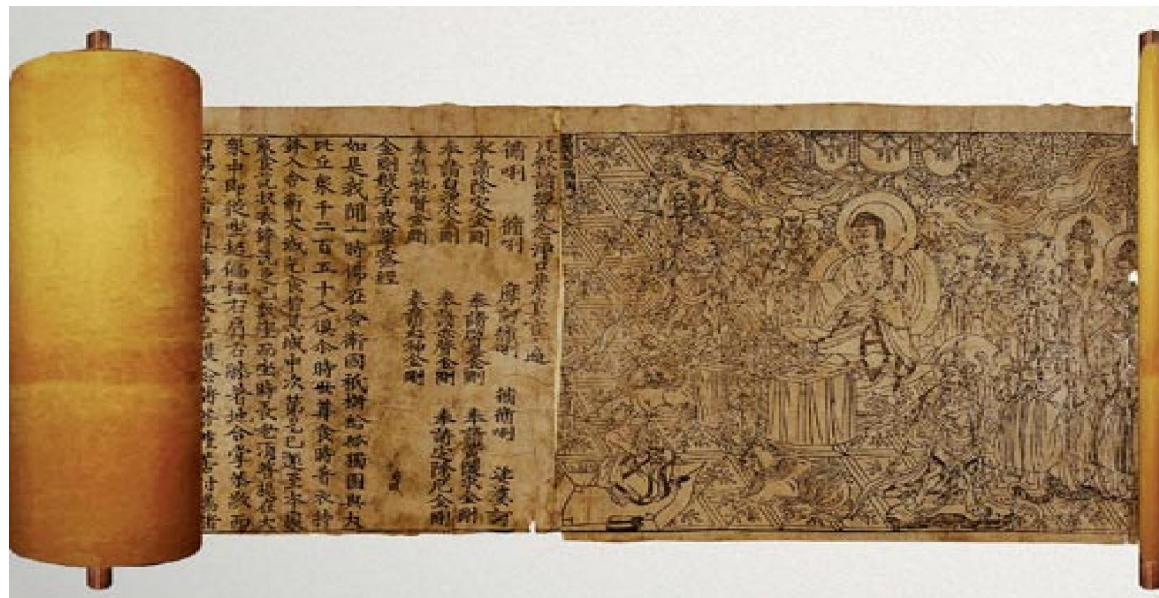 凡欲讀經先念淨口業真言一遍
脩唎 脩唎 摩訶脩唎 脩脩唎 娑婆訶
奉請除災金剛 奉請辟毒金剛 奉請黃隨求金剛
奉請白淨水金剛 奉請赤聲金剛 奉請定除厄金剛
奉請紫賢金剛 奉請大神金剛
金剛般若波羅蜜經
如是我聞一時佛在舍衛國祇樹給孤獨園與大
比丘眾千二百五十人俱尒時世尊食時著衣持
鉢入舍衛大城乞食於其城中次第乞已還至本處
飯食訖收衣鉢洗足已敷座而坐時長老須菩提在大
眾中即從座起偏袒右肩右膝著地合掌恭敬而